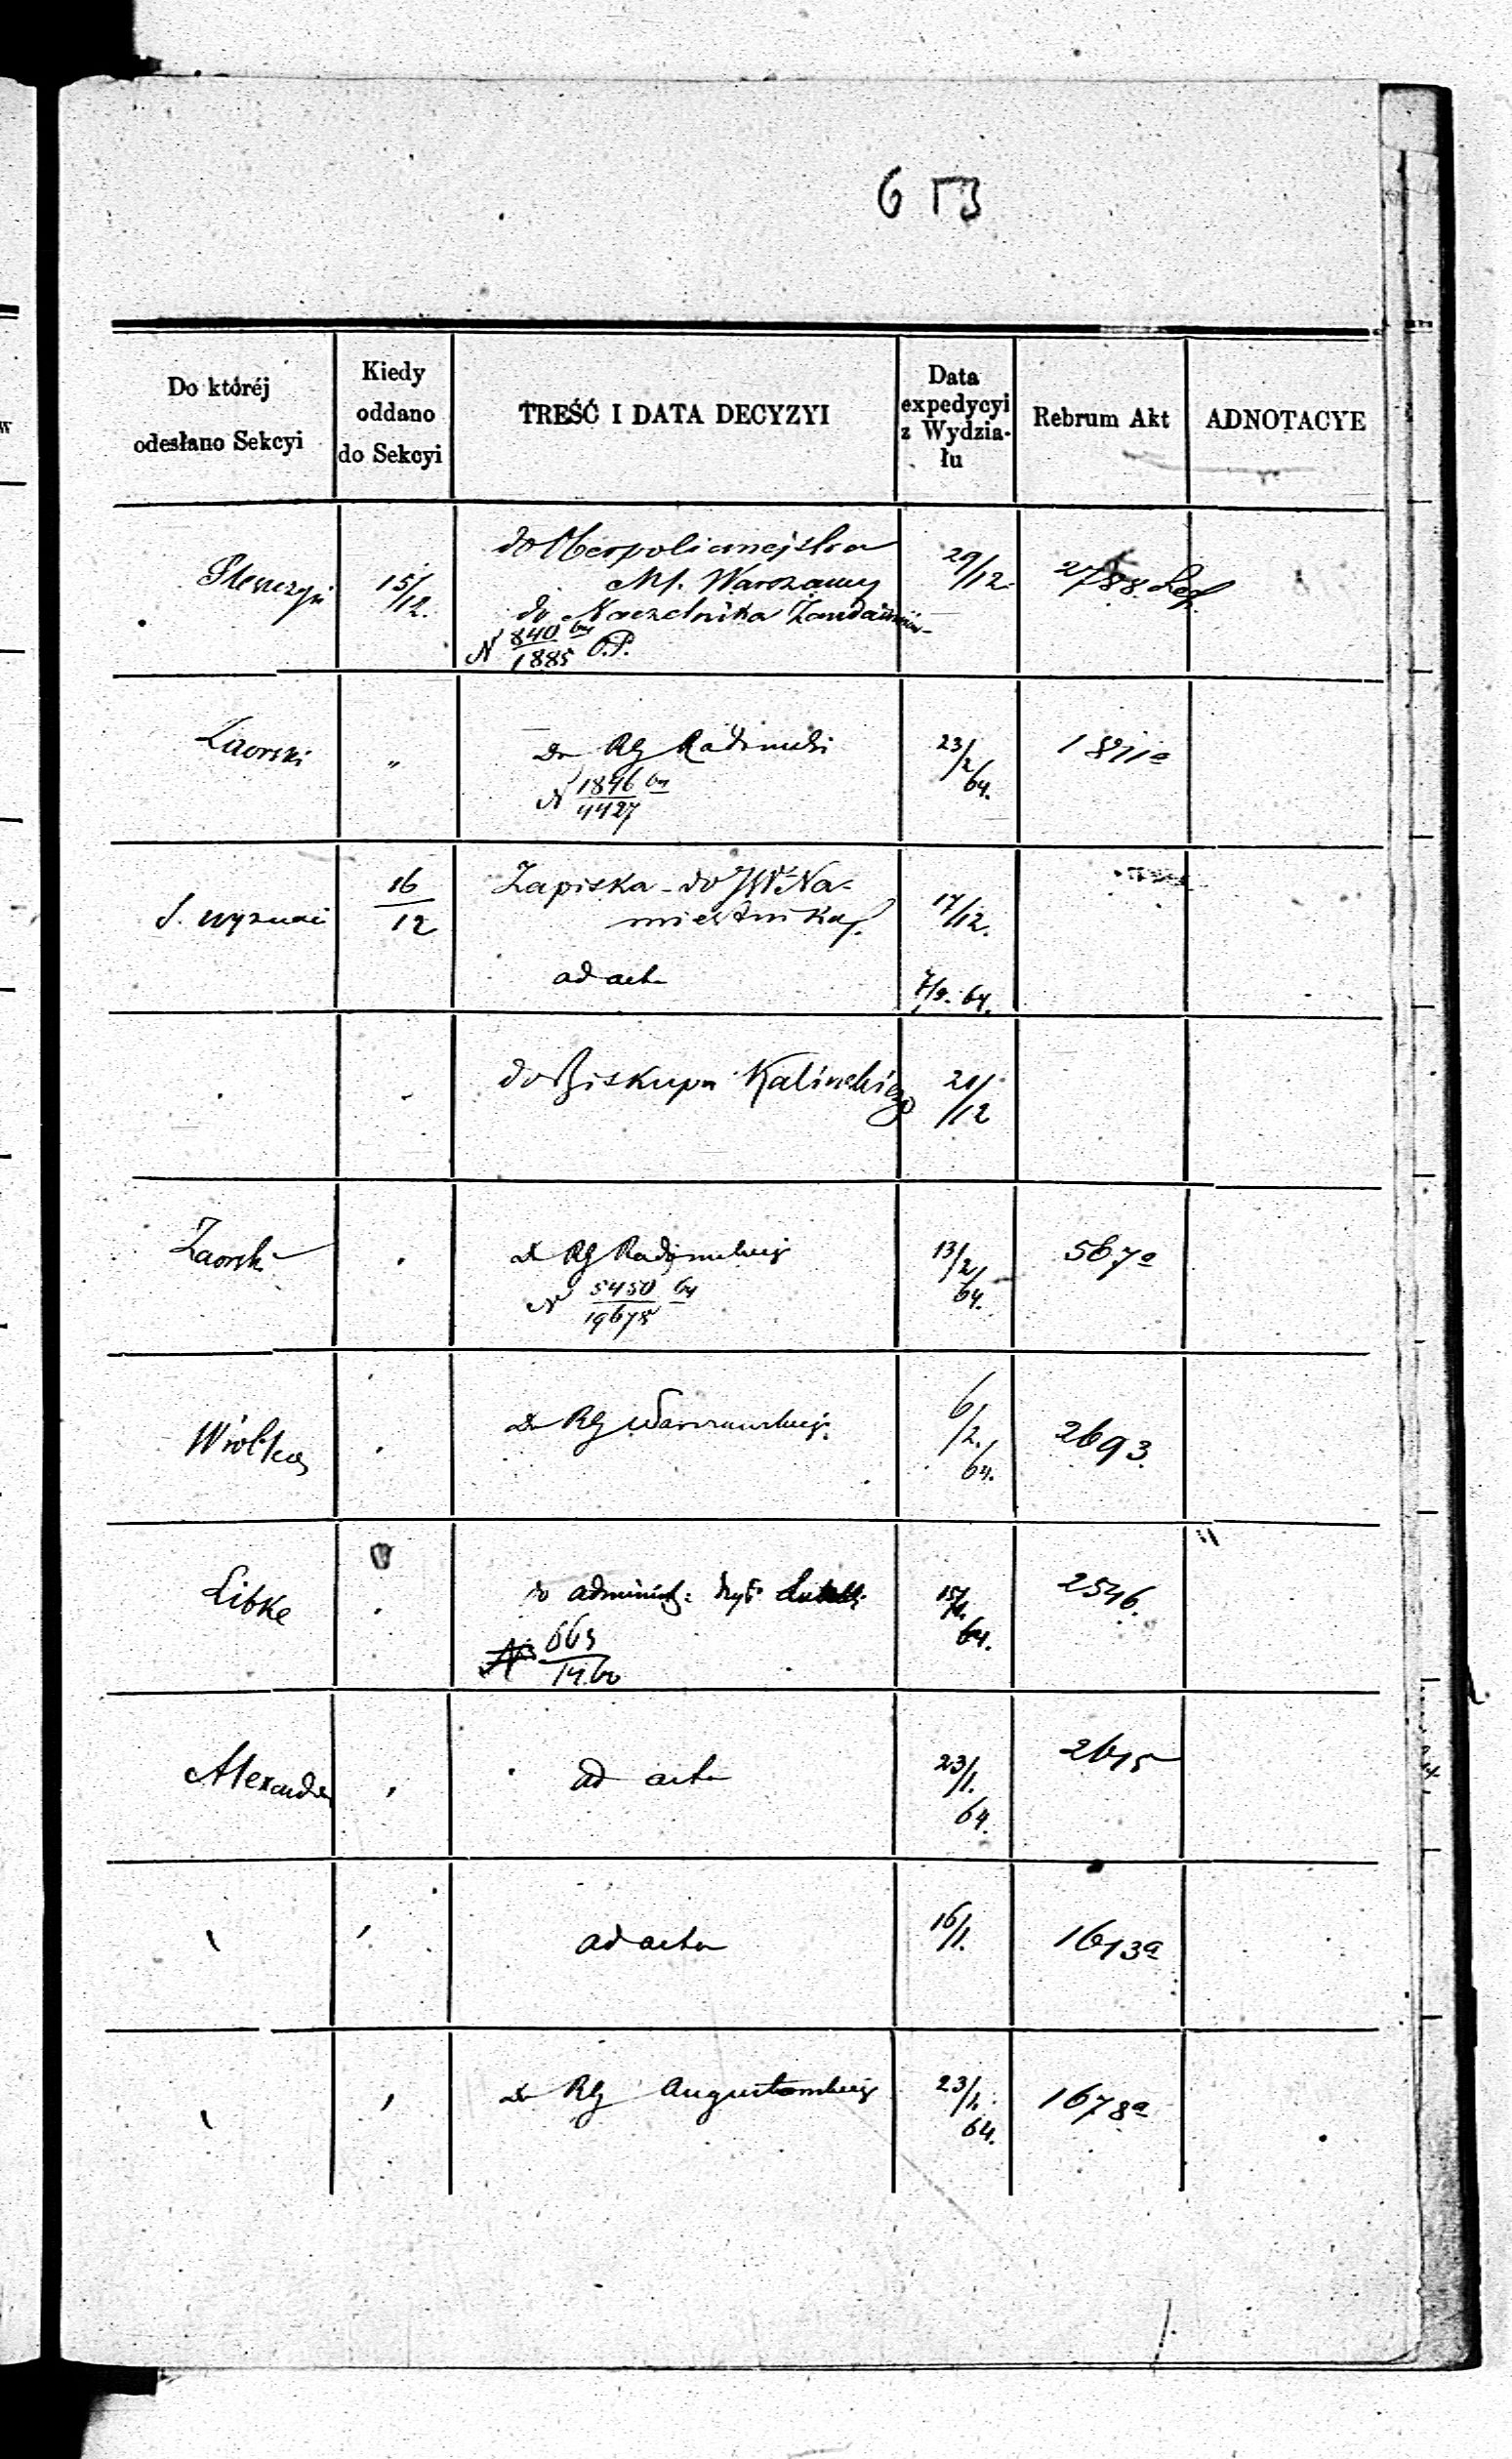 Do któréj
odesłano Sekcyi
Kiedy
oddano
do Sekcyi
TREŚĆ I DATA DECYZYI
Data
expedycyi
z Wydzia-
łu
Rebrum Akt
ADNOTACYE
15/12.
do Oberpolicmejstra
M. Warszawy
do Naczelnika Żandarmów
N 840/1885 64 O.P.
29/12.
2788.
Zaorski
"
do RG Radomski
N 1846/4427 64
23/2/64.
1811a
S. wyznań
16/12
Zapiska do JW Na-
miestnika
ad acta
17/12.
7/9. 64.
do Biskupa Kalinskiego
21/12
Zaorski
do RG Radomskiej
N 5450/19678 64
13/2/64.
567a
do RG Warszawskiej
6/2./64.
2693.
Libke
do administ:
N 663/1460
15/1. 64.
2546.
Alexander
ad acta
23/1. 64.
2615
ad acta
16/1.
1613a
do RG Augustowskiej
23/1. 64.
1678a